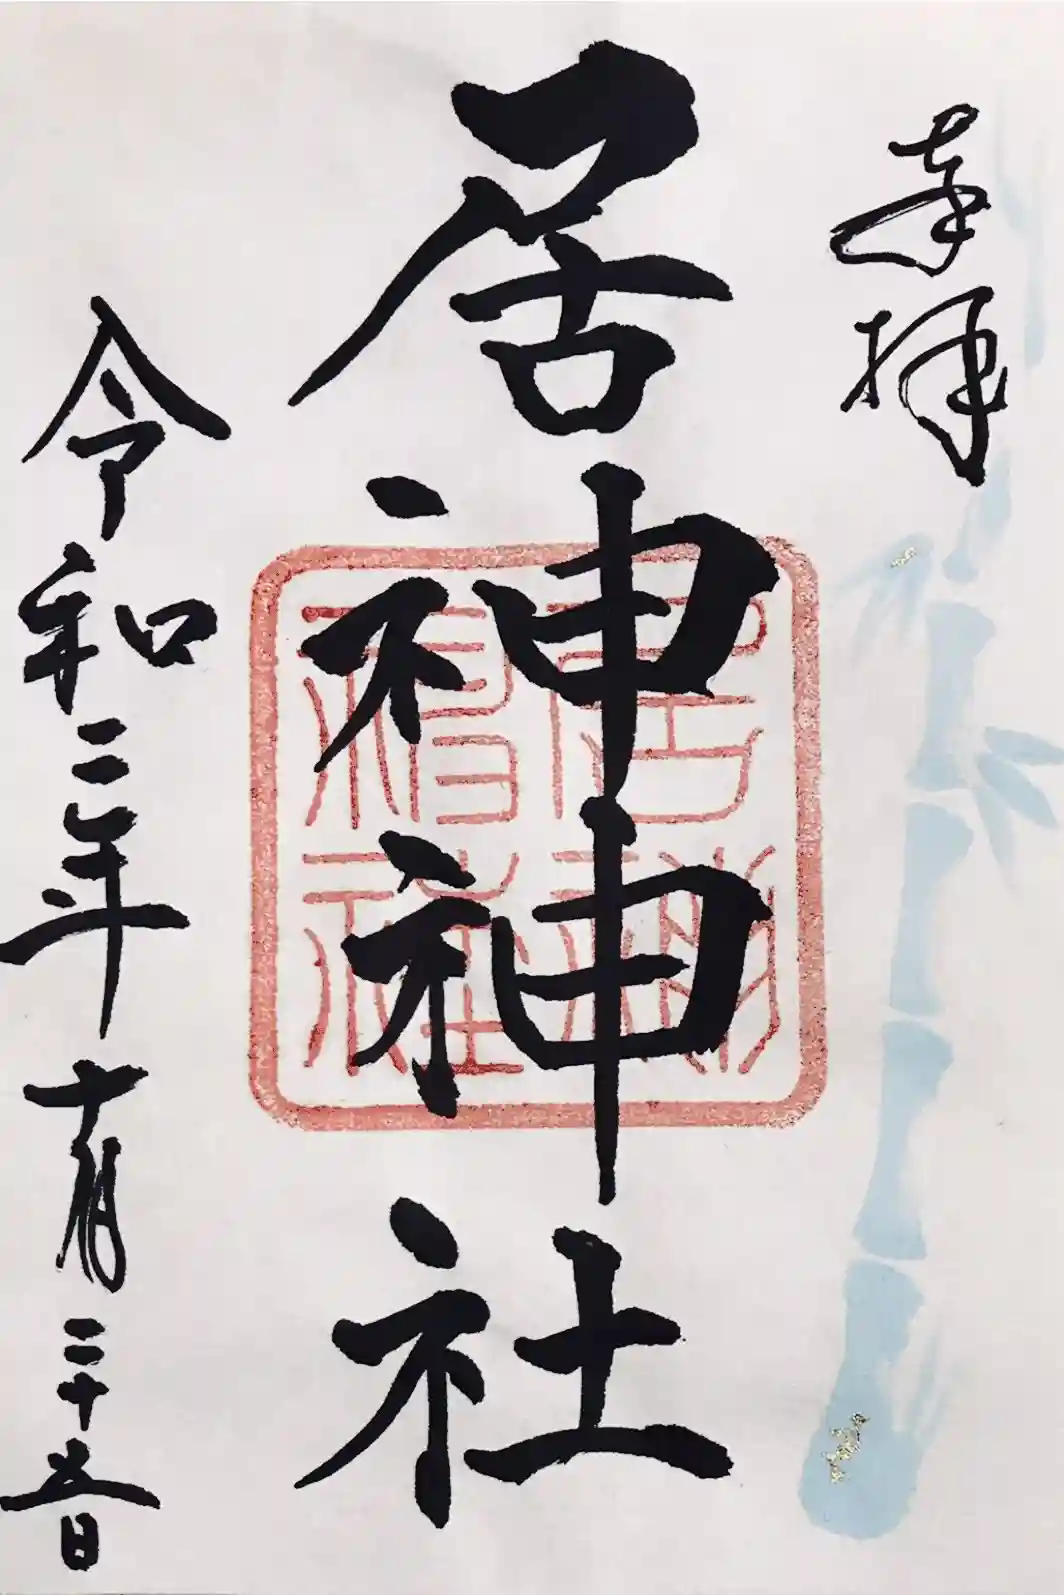 奉拝
居神神社
令和二年十月二十五日